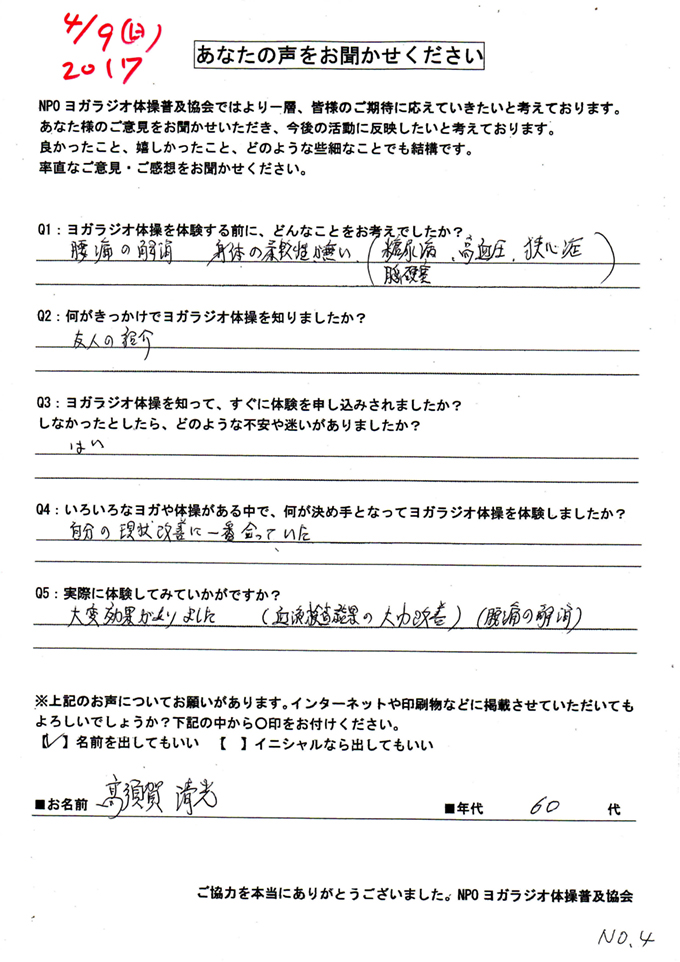 4/9(日)
2017
あなたの声をお聞かせください
NPOヨガラジオ体操普及協会ではより一層、皆様のご期待に応えていきたいと考えております。
あなた様のご意見をお聞かせいただき、今後の活動に反映したいと考えております。
良かったこと、嬉しかったこと、どのような些細なことでも結構です。
率直なご意見・ご感想をお聞かせください。
Q1：ヨガラジオ体操を体験する前に、どんなことをお考えでしたか？
腰痛の解消 身体の柔軟性が無い、(糖尿病、高血圧、狭心症
脳梗塞)
Q2：何がきっかけでヨガラジオ体操を知りましたか？
友人の紹介
Q3：ヨガラジオ体操を知って、すぐに体験を申し込みされましたか？
しなかったとしたら、どのような不安や迷いがありましたか？
はい
Q4：いろいろなヨガや体操がある中で、何が決め手となってヨガラジオ体操を体験しましたか？
自分の現状改善に一番合っていた
Q5：実際に体験してみていかがですか？
大変効果がありました (血液検査結果の大巾改善) (腰痛の解消)
※上記のお声についてお願いがあります。インターネットや印刷物などに掲載させていただいても
よろしいでしょうか？下記の中から〇印をお付けください。
【✓】名前を出してもいい 【 】イニシャルなら出してもいい
■お名前 高須賀 清光 ■年代 60 代
ご協力を本当にありがとうございました。NPOヨガラジオ体操普及協会
NO.4